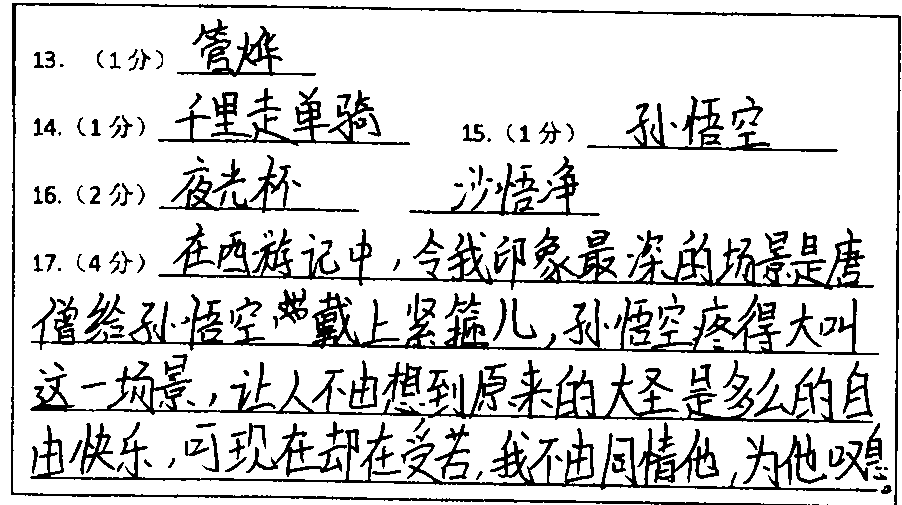 13. （1分）管烨
14.（1分）千里走单骑 15.（1分）孙悟空
16.（2分）夜光杯 沙悟净
17.（4分）在西游记中，令我印象最深的场景是唐
僧给孙悟空戴上紧箍儿，孙悟空疼得大叫
这一场景，让人不由想到原来的大圣是多么的自
由快乐，可现在却在受苦，我不由同情他，为他叹息。